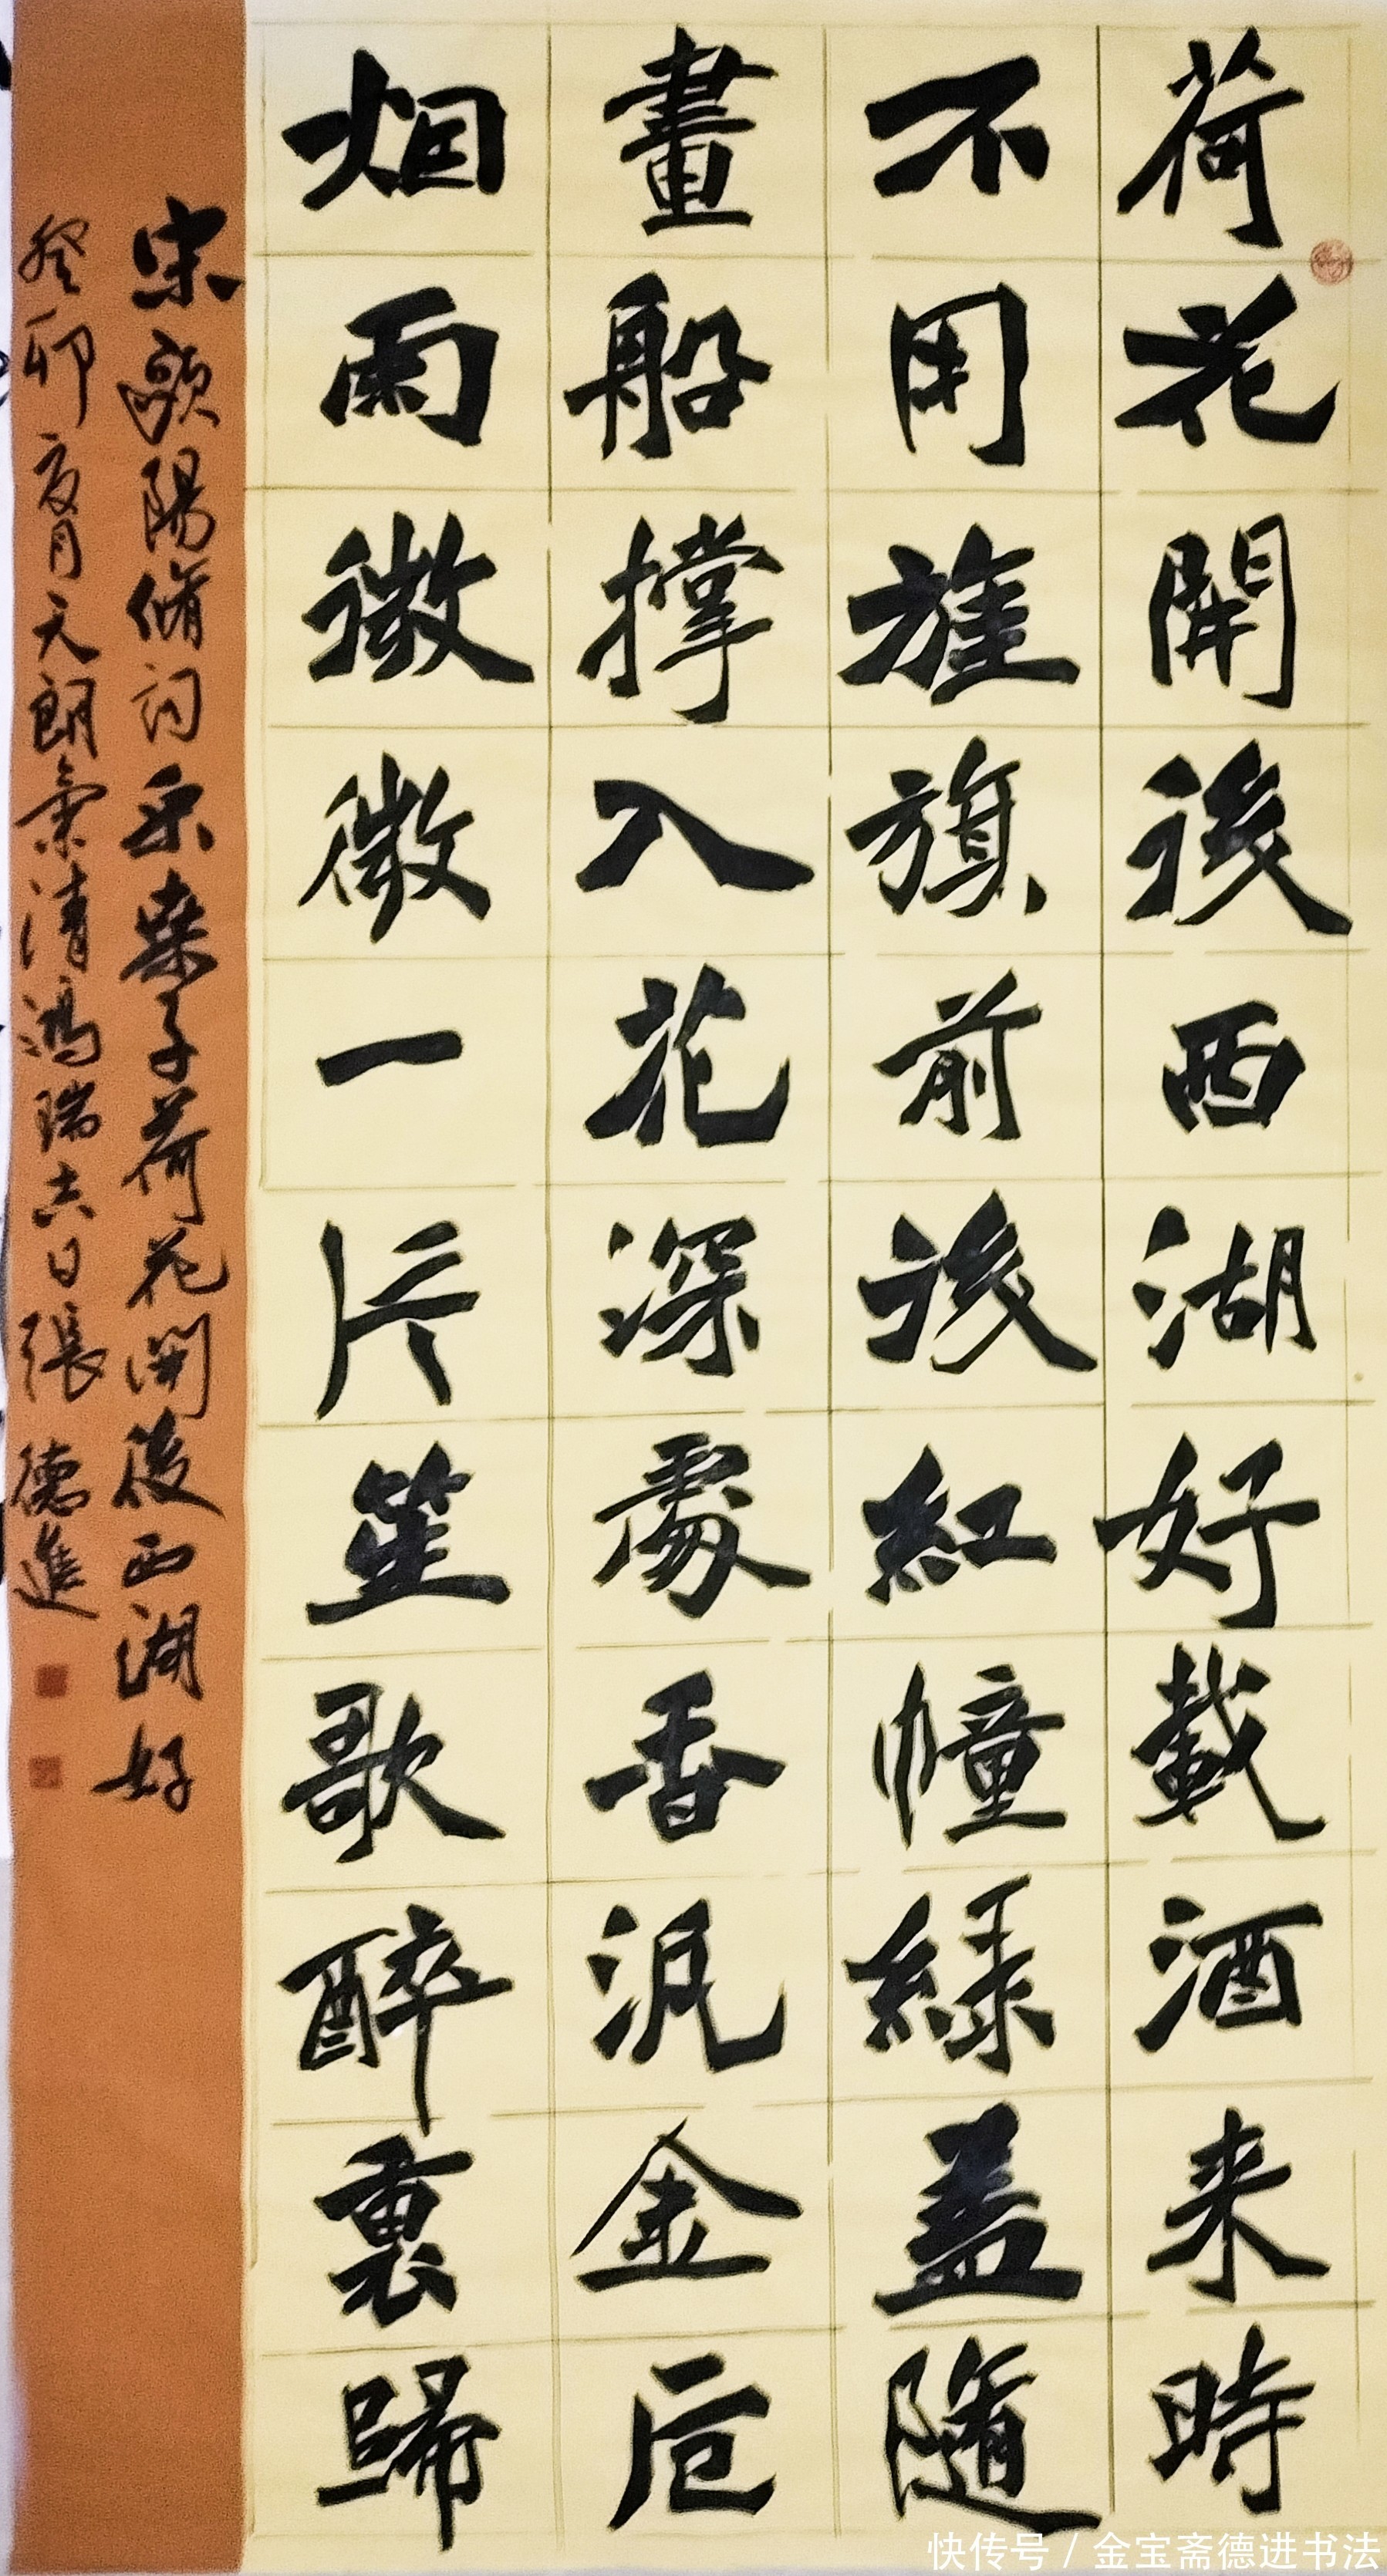 荷花開後西湖好載酒来時
不用旌旗前後紅幢綠蓋隨
畫船撐入花深處香泛金卮
烟雨微微一片笙歌醉裏歸
宋歐陽脩詞采桑子荷花開後西湖好
癸卯夏月天朗氣清鴻瑞吉日張德進
快传号 / 金宝斋德进书法